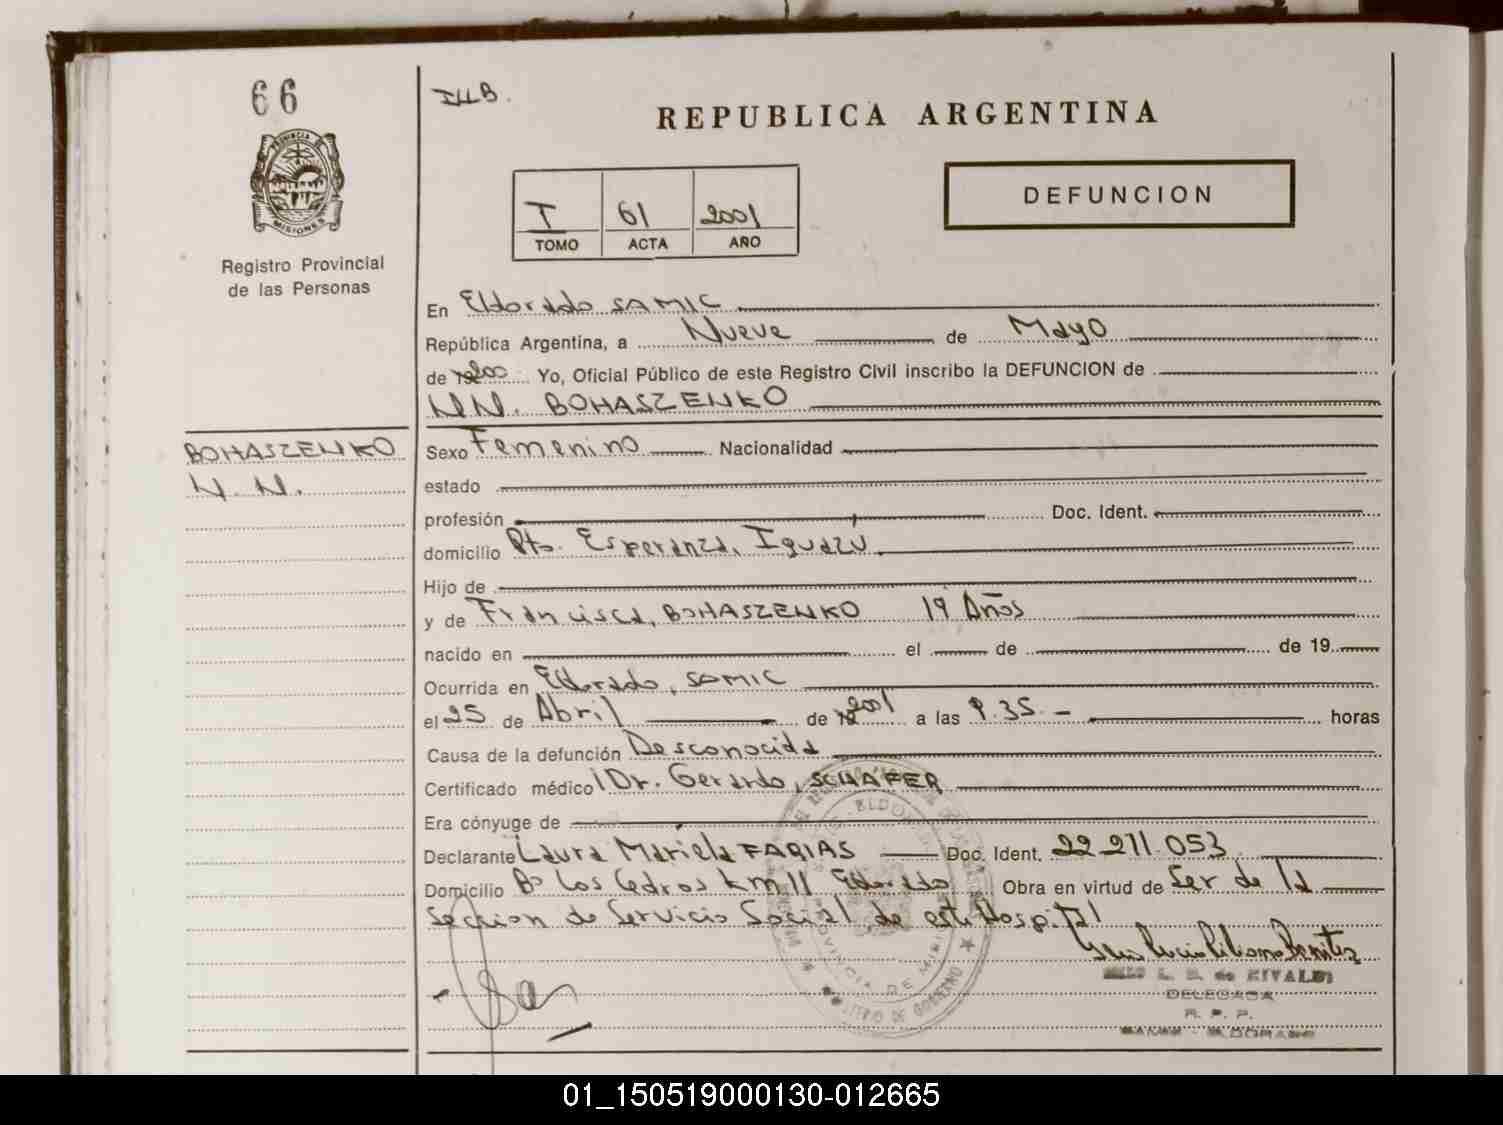 66
ILLB.
REPUBLICA ARGENTINA
PROVINCIA DE
MISIONES
I 61 2001
TOMO ACTA AÑO
DEFUNCION
Registro Provincial
de las Personas
En Eldorado SAMIC
República Argentina, a Nueve de Mayo
de Yo, Oficial Público de este Registro Civil inscribo la DEFUNCION de
NN. BOHASZENKO
BOHASZENKO
N.N.
Sexo Femenino Nacionalidad
estado
profesión Doc. Ident.
domicilio Pto. Esperanza, Iguazu.
Hijo de
y de Francisca, BOHASZENKO 19 Años
nacido en el de de 19
Ocurrida en Eldorado, SAMIC
el 25 de Abril de 2001 a las 9.35 - horas
Causa de la defunción Desconocida
Certificado médico Dr. Gerardo, SCHAFER
Era cónyuge de
Declarante Laura Mariela FARIAS Doc. Ident. 22.211.053
Domicilio Bo Los Cedros km 11 Eldorado Obra en virtud de Ser de la
Seccion de Servicio Social de este Hospital
DE RIVALDI
DELEGADA
R. P. P.
ELDORADO
PROVINCIA DE MISIONES
MINISTERIO DE GOBIERNO
01_150519000130-012665